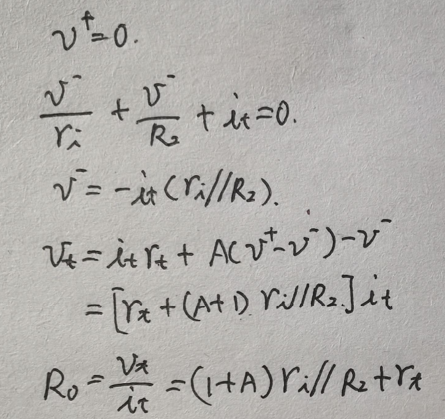 v⁺=0.
v⁻/rᵢ + v⁻/R₂ + iₜ=0.
v⁻=-iₜ(rᵢ//R₂).
vₜ=iₜrₜ + A(v⁺-v⁻)-v⁻
=[rₜ+(A+1) rᵢ//R₂]iₜ
R₀=vₜ/iₜ=(1+A)rᵢ//R₂+rₜ